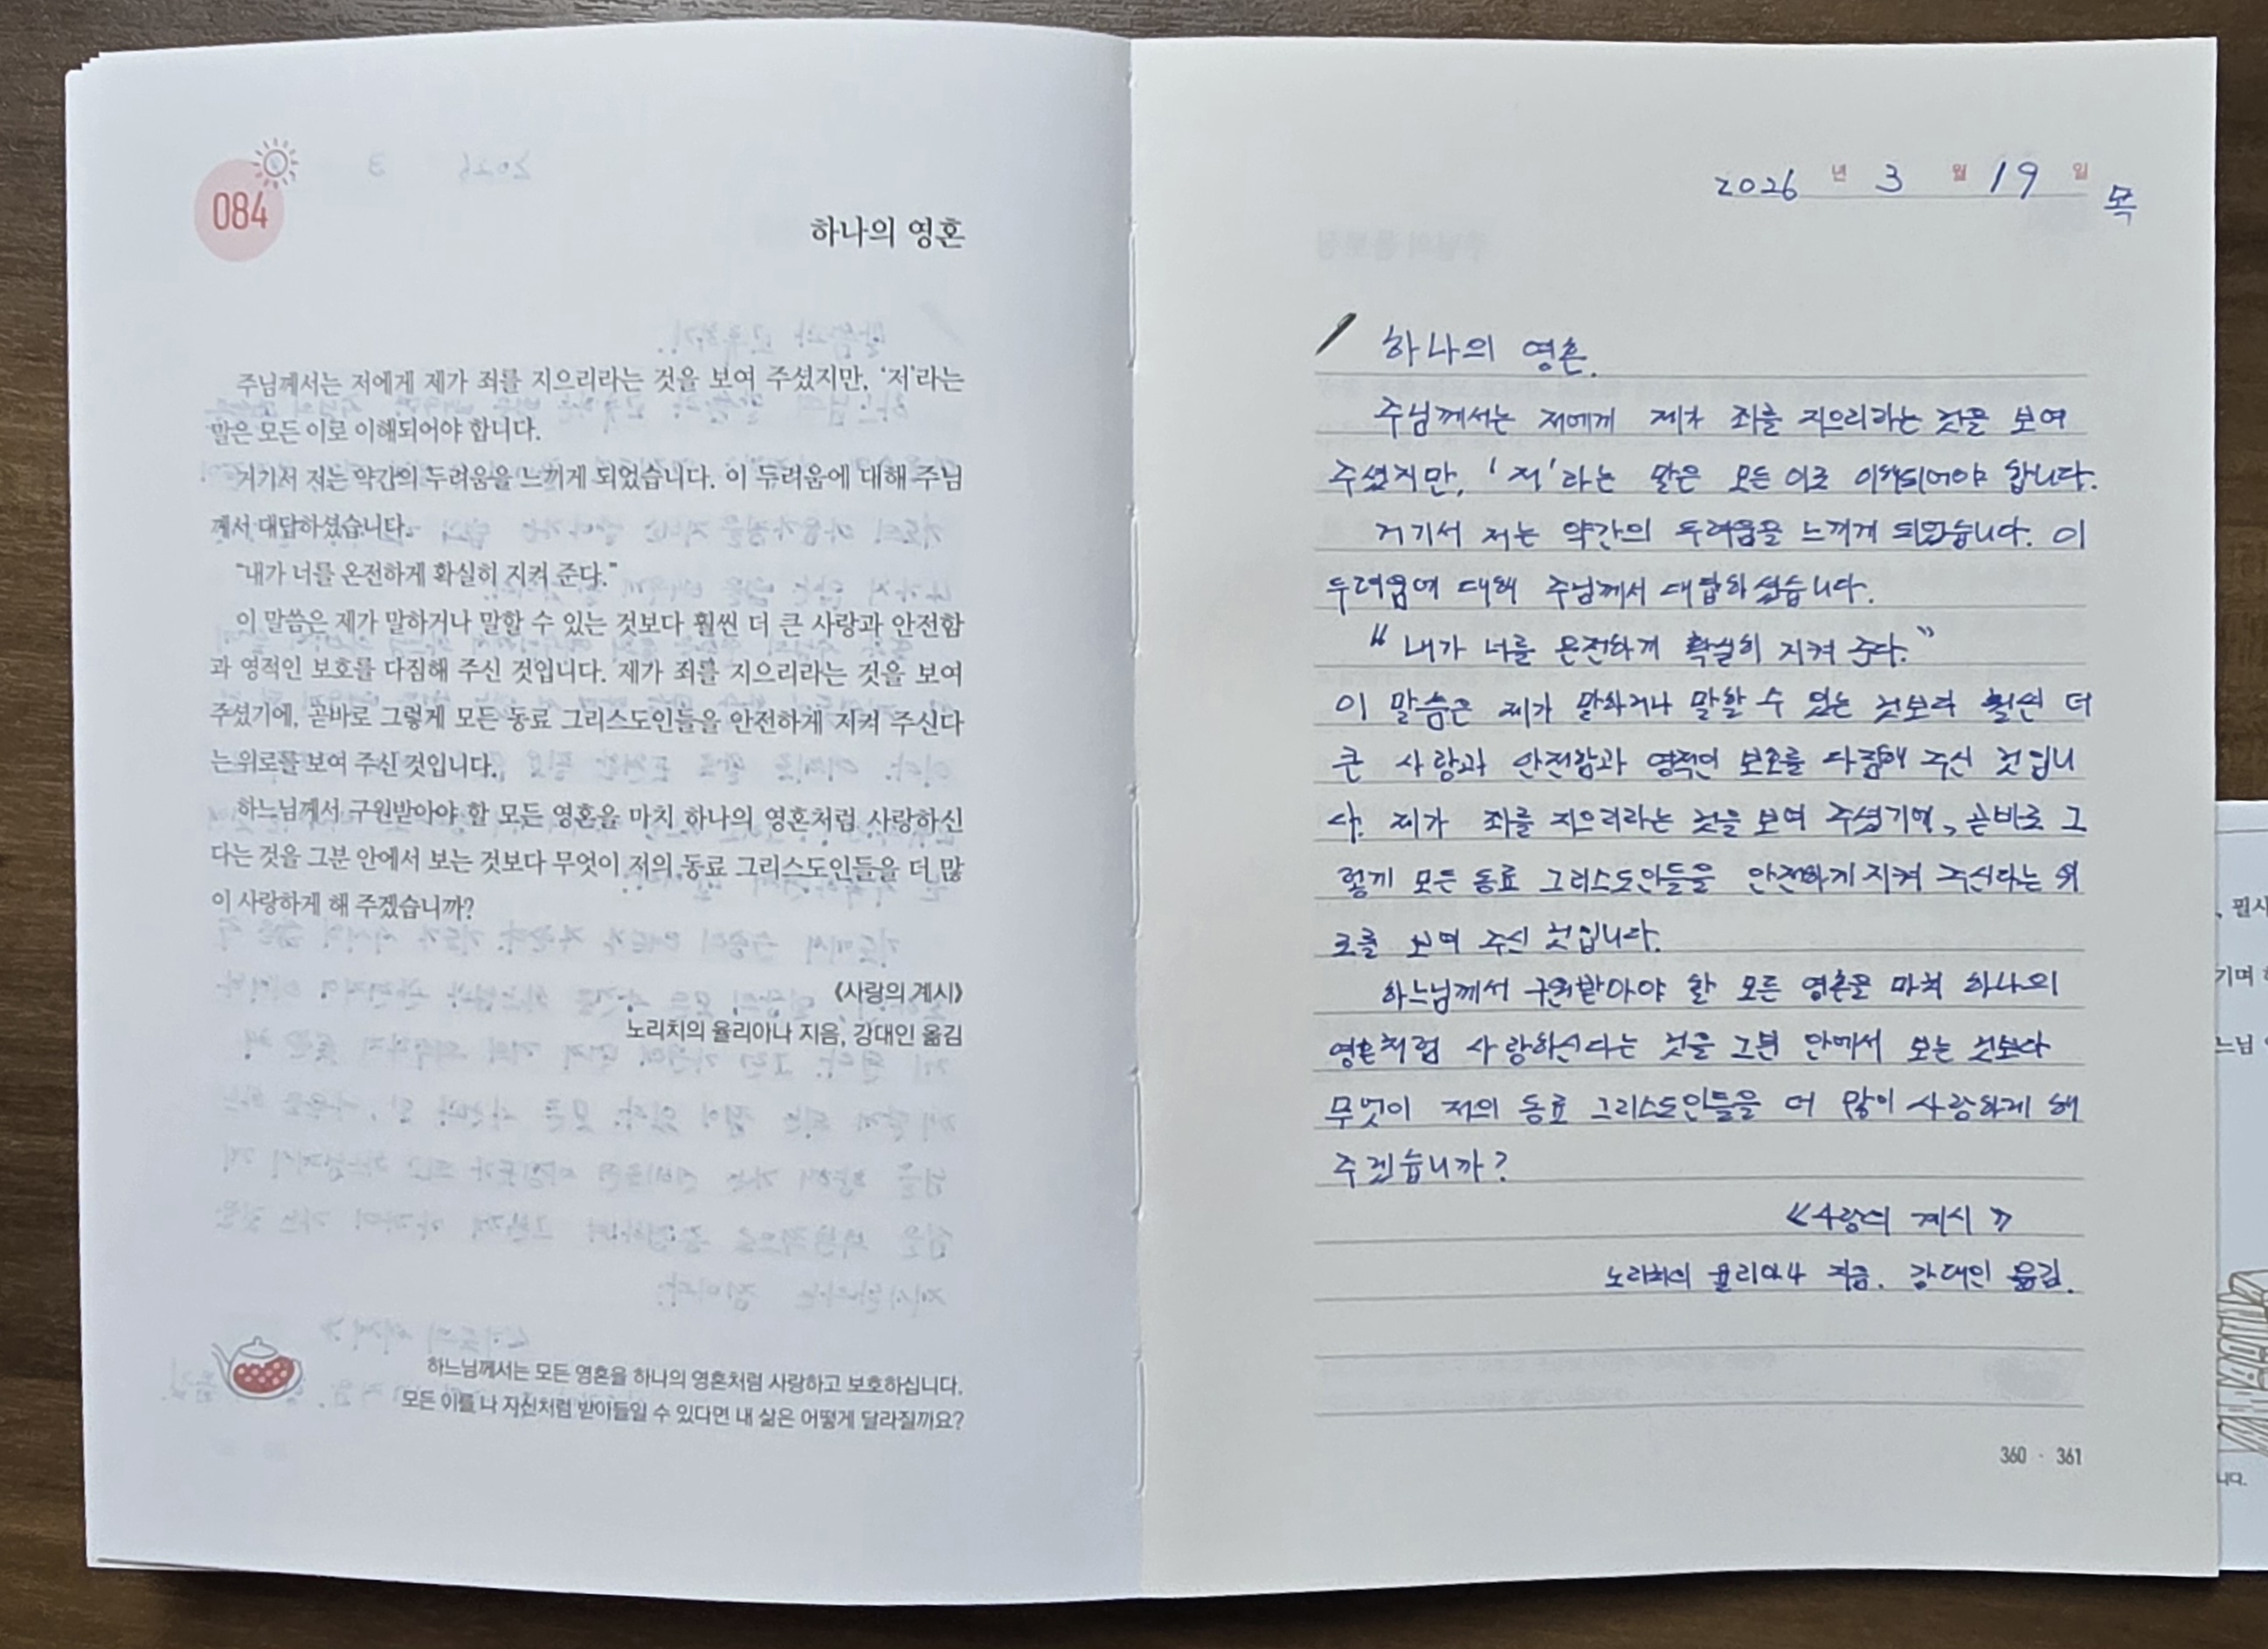 084
하나의 영혼
주님께서는 저에게 제가 죄를 지으리라는 것을 보여 주셨지만, ‘저’라는
말은 모든 이로 이해되어야 합니다.
거기서 저는 약간의 두려움을 느끼게 되었습니다. 이 두려움에 대해 주님
께서 대답하셨습니다.
“내가 너를 온전하게 확실히 지켜 준다.”
이 말씀은 제가 말하거나 말할 수 있는 것보다 훨씬 더 큰 사랑과 안전함
과 영적인 보호를 다짐해 주신 것입니다. 제가 죄를 지으리라는 것을 보여
주셨기에, 곧바로 그렇게 모든 동료 그리스도인들을 안전하게 지켜 주신다
는 위로를 보여 주신 것입니다.
하느님께서 구원받아야 할 모든 영혼을 마치 하나의 영혼처럼 사랑하신
다는 것을 그분 안에서 보는 것보다 무엇이 저의 동료 그리스도인들을 더 많
이 사랑하게 해 주겠습니까?
《사랑의 계시》
노리치의 율리아나 지음, 강대인 옮김
하느님께서는 모든 영혼을 하나의 영혼처럼 사랑하고 보호하십니다.
모든 이를 나 자신처럼 받아들일 수 있다면 내 삶은 어떻게 달라질까요?
2026 년 3 월 19 일 목
하나의 영혼.
주님께서는 저에게 제가 죄를 지으리라는 것을 보여
주셨지만, ‘저’라는 말은 모든 이로 이해되어야 합니다.
거기서 저는 약간의 두려움을 느끼게 되었습니다. 이
두려움에 대해 주님께서 대답하셨습니다.
“내가 너를 온전하게 확실히 지켜 준다.”
이 말씀은 제가 말하거나 말할 수 있는 것보다 훨씬 더
큰 사랑과 안전함과 영적인 보호를 다짐해 주신 것입니
다. 제가 죄를 지으리라는 것을 보여 주셨기에, 곧바로 그
렇게 모든 동료 그리스도인들을 안전하게 지켜 주신다는 위
로를 보여 주신 것입니다.
하느님께서 구원받아야 할 모든 영혼을 마치 하나의
영혼처럼 사랑하신다는 것을 그분 안에서 보는 것보다
무엇이 저의 동료 그리스도인들을 더 많이 사랑하게 해
주겠습니까?
《사랑의 계시》
노리치의 율리아나 지음. 강대인 옮김.
360 · 361
, 필사
기며
느님
니다.